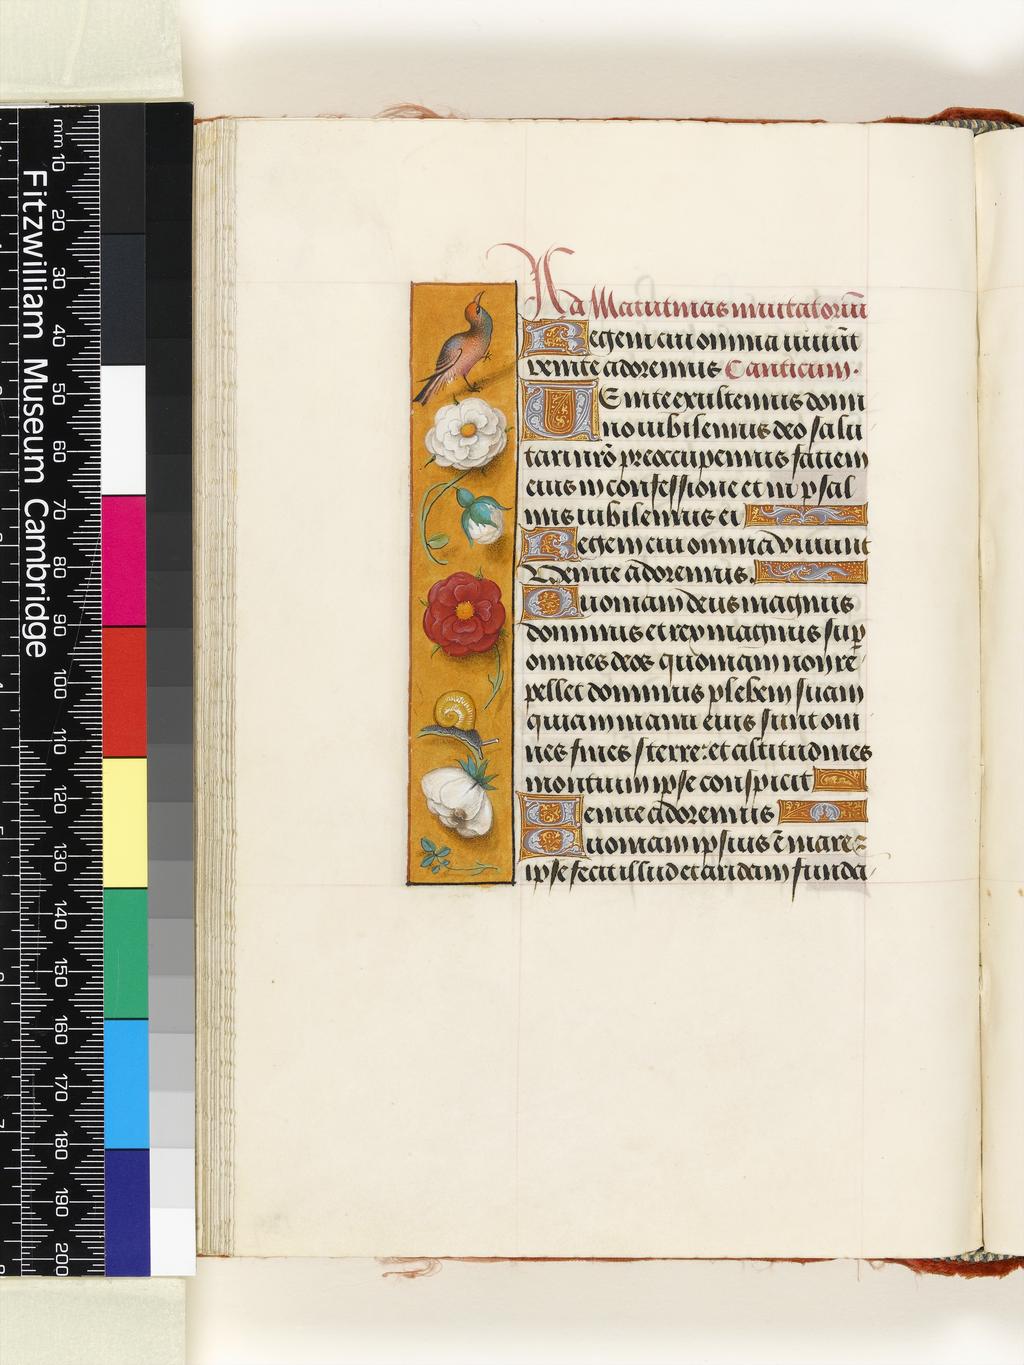 Ad Matutinas inuitatoriū
Regem cui omnia uiuūt
venite adoremus Canticum.
Uenite exultemus domi
no iubilemus deo salu
tari nrō preoccupemus faciem
eius in confessione et in psal
mis iubilemus ei
Regem cui omnia viuunt
Venite adoremus.
Quoniam deus magnus
dominus et rex magnus sup
omnes deos quoniam non re
pellet dominus plebem suam
quia in manu eius sunt om
nes fines terre: et altitudines
montium ipse conspicit
Uenite adoremus
Quoniam ipsius ē mare
ipse fecit illud et aridam funda
Fitzwilliam Museum Cambridge
mm 10 20 30 40 50 60 70 80 90 100 110 120 130 140 150 160 170 180 190 200